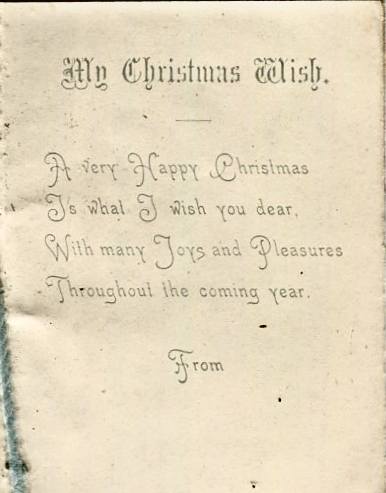 My Christmas Wish.
A very Happy Christmas
Is what I wish you dear,
With many Joys and Pleasures
Throughout the coming year.
From